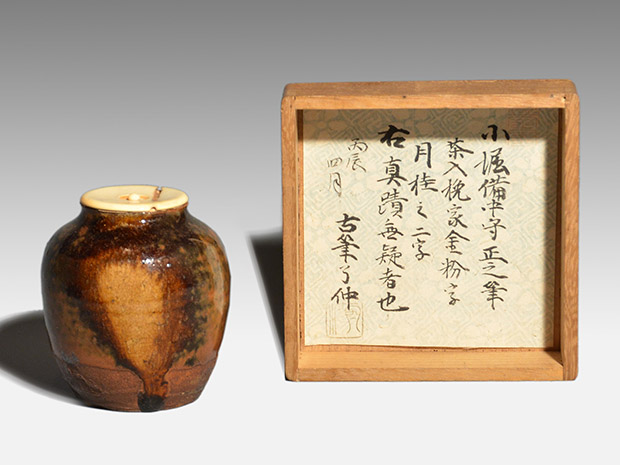 小堀備中守 正之筆
茶入挽家金粉字
月桂之二字
右真蹟無疑者也
丙辰 四月
古筆了仲